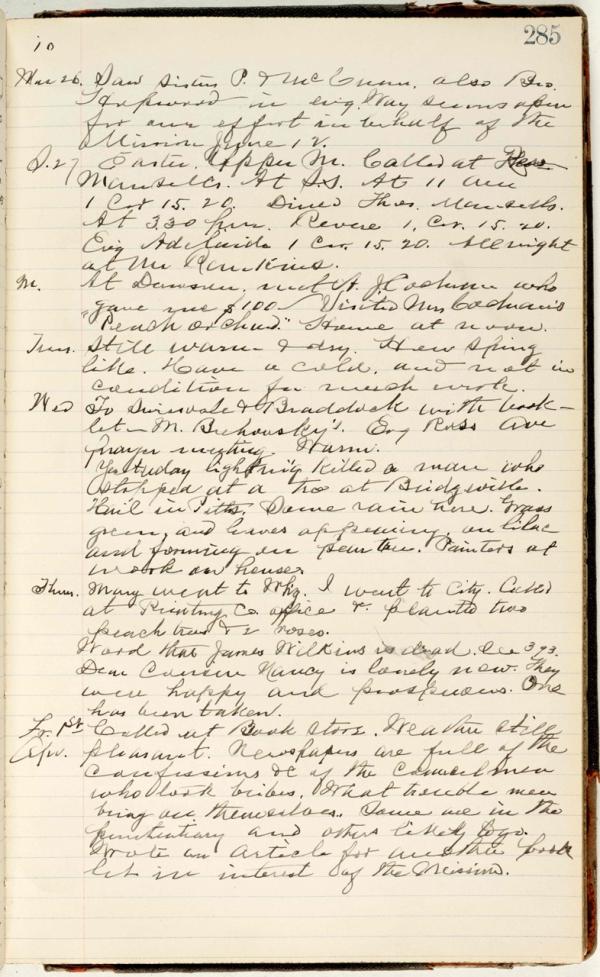 10
285
Mar 26. Saw Sisters P. & McCunn, also Bro.
Hopwood in evg. Way seems open
for our effort in behalf of the
Mission June 12.
S. 27 Easter. Upper M. Called at
Mansells. At S.S. At 11 am
1 Cor 15. 20. Dined Thos. Mansells.
At 3.30 p.m. Revere 1. Cor. 15. 20.
Evg Adelaide 1 Cor. 15. 20. All night
at Mr Rankins.
M. At Dawson, met A. J. Cochran who
gave me $100 - Visited Mrs Cochran's
"Peach Orchard" Home at noon.
Tues. Still warm & dry. How Spring
like. Have a cold, and not in
condition for much work.
Wed To Swissvale & Braddock with book-
let - M. Evg Ross Ave
prayer meeting. Warm.
Yesterday lightning killed a man who
stopped at a tree at Bridgeville.
Hail in Pitts. Some rain here. Grass
green, and leaves appearing on lilac
and forming on pear tree. Painters at
work on house.
Thurs. Mary went to Wkg. I went to City. Called
at Printing Co office & planted two
peach trees & 2 roses.
Word that James Wilkins is dead. See 393.
Dear Cousin Nancy is lonely now. They
were happy and prosperous. One
has been taken.
Fr. 1st Called at Book Store. Weather still
Apr. pleasant. Newspapers are full of the
confessions &c of the Councilmen
who took bribes. What trouble men
bring on themselves. Some are in the
penitentiary and others likely to go.
Wrote an article for another book
let in interest of the Mission.